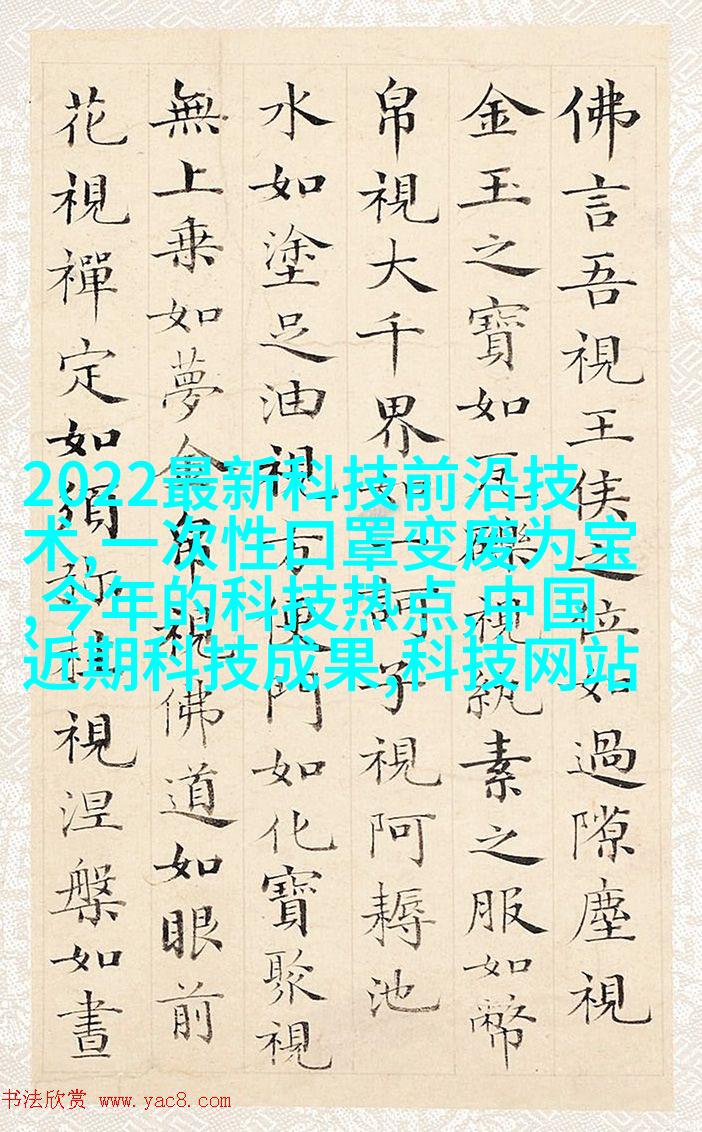 佛言吾視王侯之位如過隙塵視
金玉之寶如瓦礫視紈素之服如幣
帛視大千界如一訶子視阿耨池
水如塗足油視方便門如化寶聚視
無上乗如夢金帛視佛道如眼前
花視禪定如須弥柱視涅槃如晝
2022最新科技前沿技
术,一次性口罩变废为宝
,今年的科技热点,中国
近期科技成果,科技网站
书法欣赏 www.yac8.com